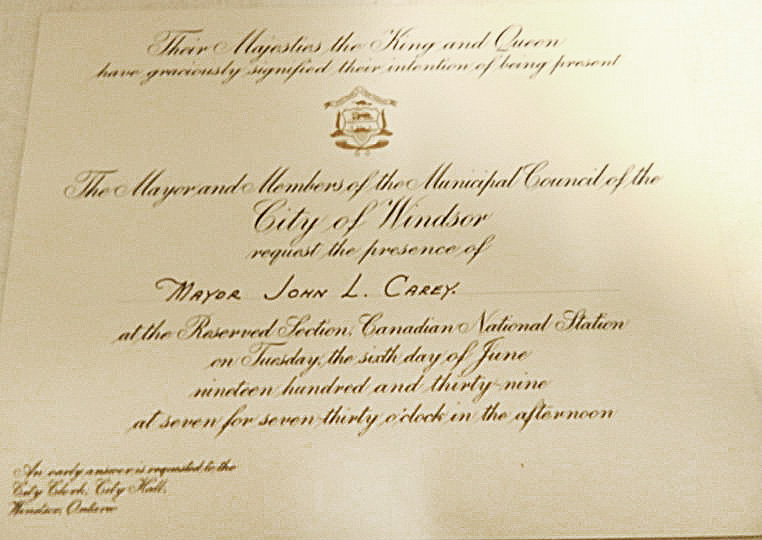 Their Majesties the King and Queen
have graciously signified their intention of being present
The Mayor and Members of the Municipal Council of the
City of Windsor
request the presence of
MAYOR JOHN L. CAREY.
at the Reserved Section, Canadian National Station
on Tuesday, the sixth day of June
nineteen hundred and thirty-nine
at seven for seven-thirty o'clock in the afternoon
An early answer is requested to the
City Clerk, City Hall,
Windsor, Ontario